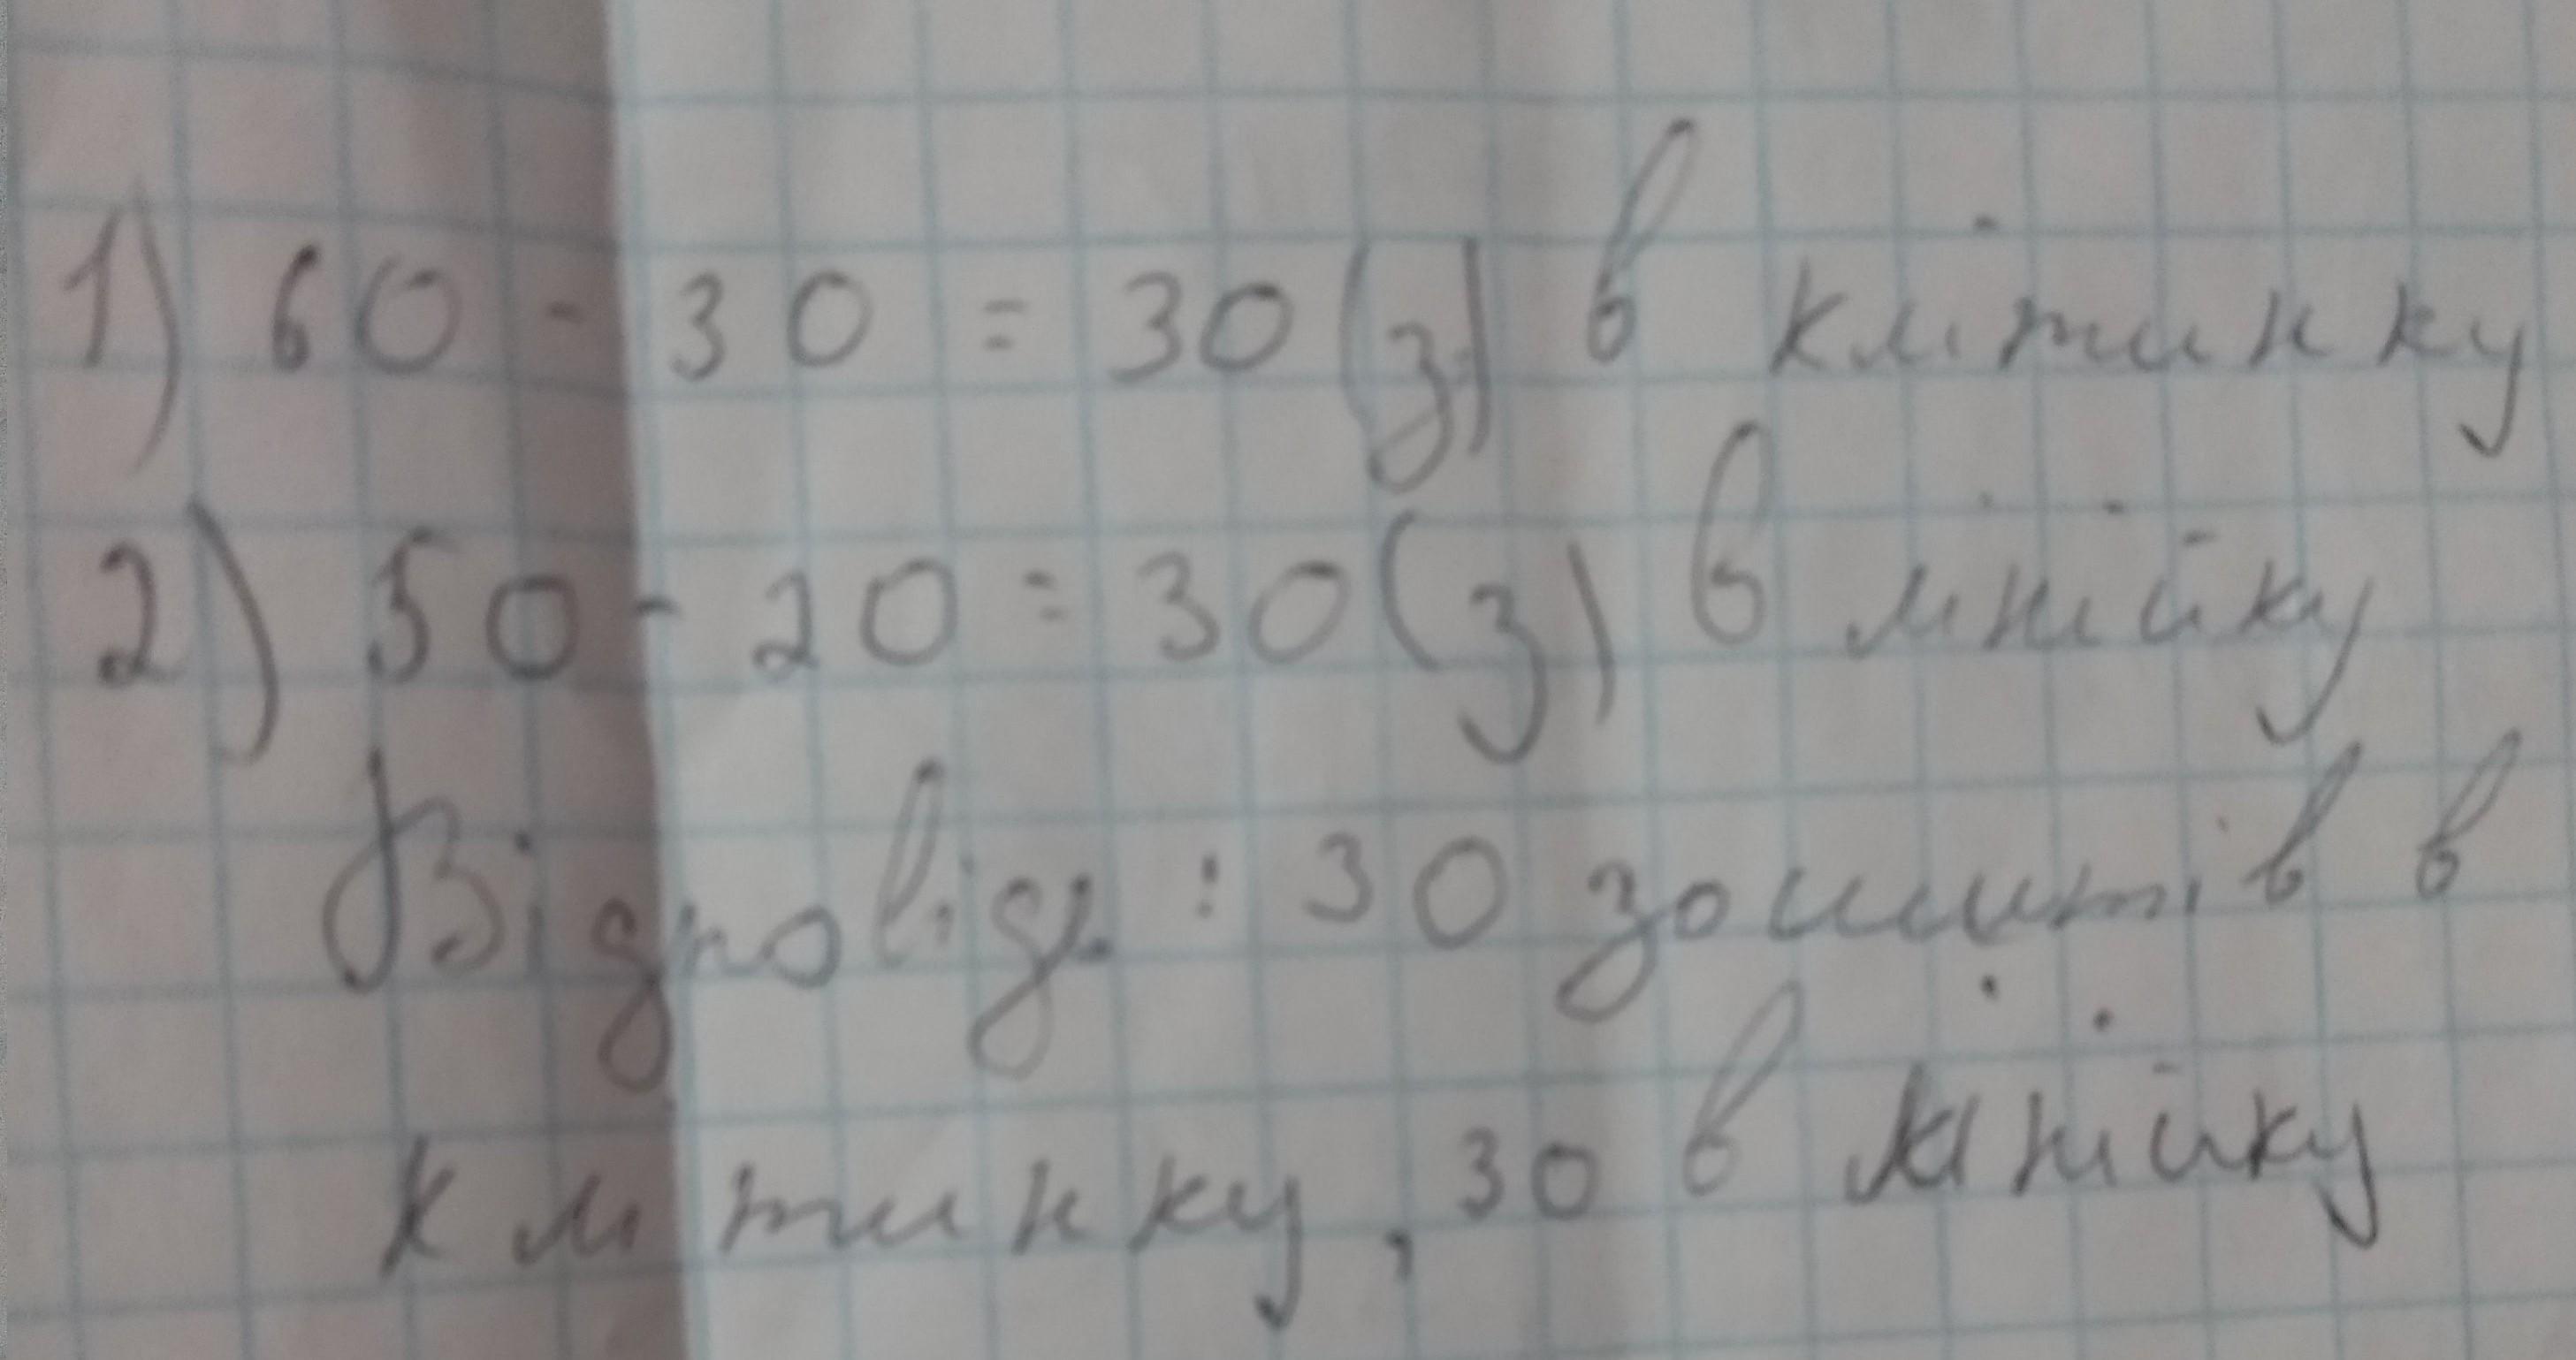 1) 60 - 30 = 30 (з) в клітинку
2) 50 - 20 = 30 (з) в лінійку
Відповідь: 30 зошитів в
клітинку, 30 в лінійку